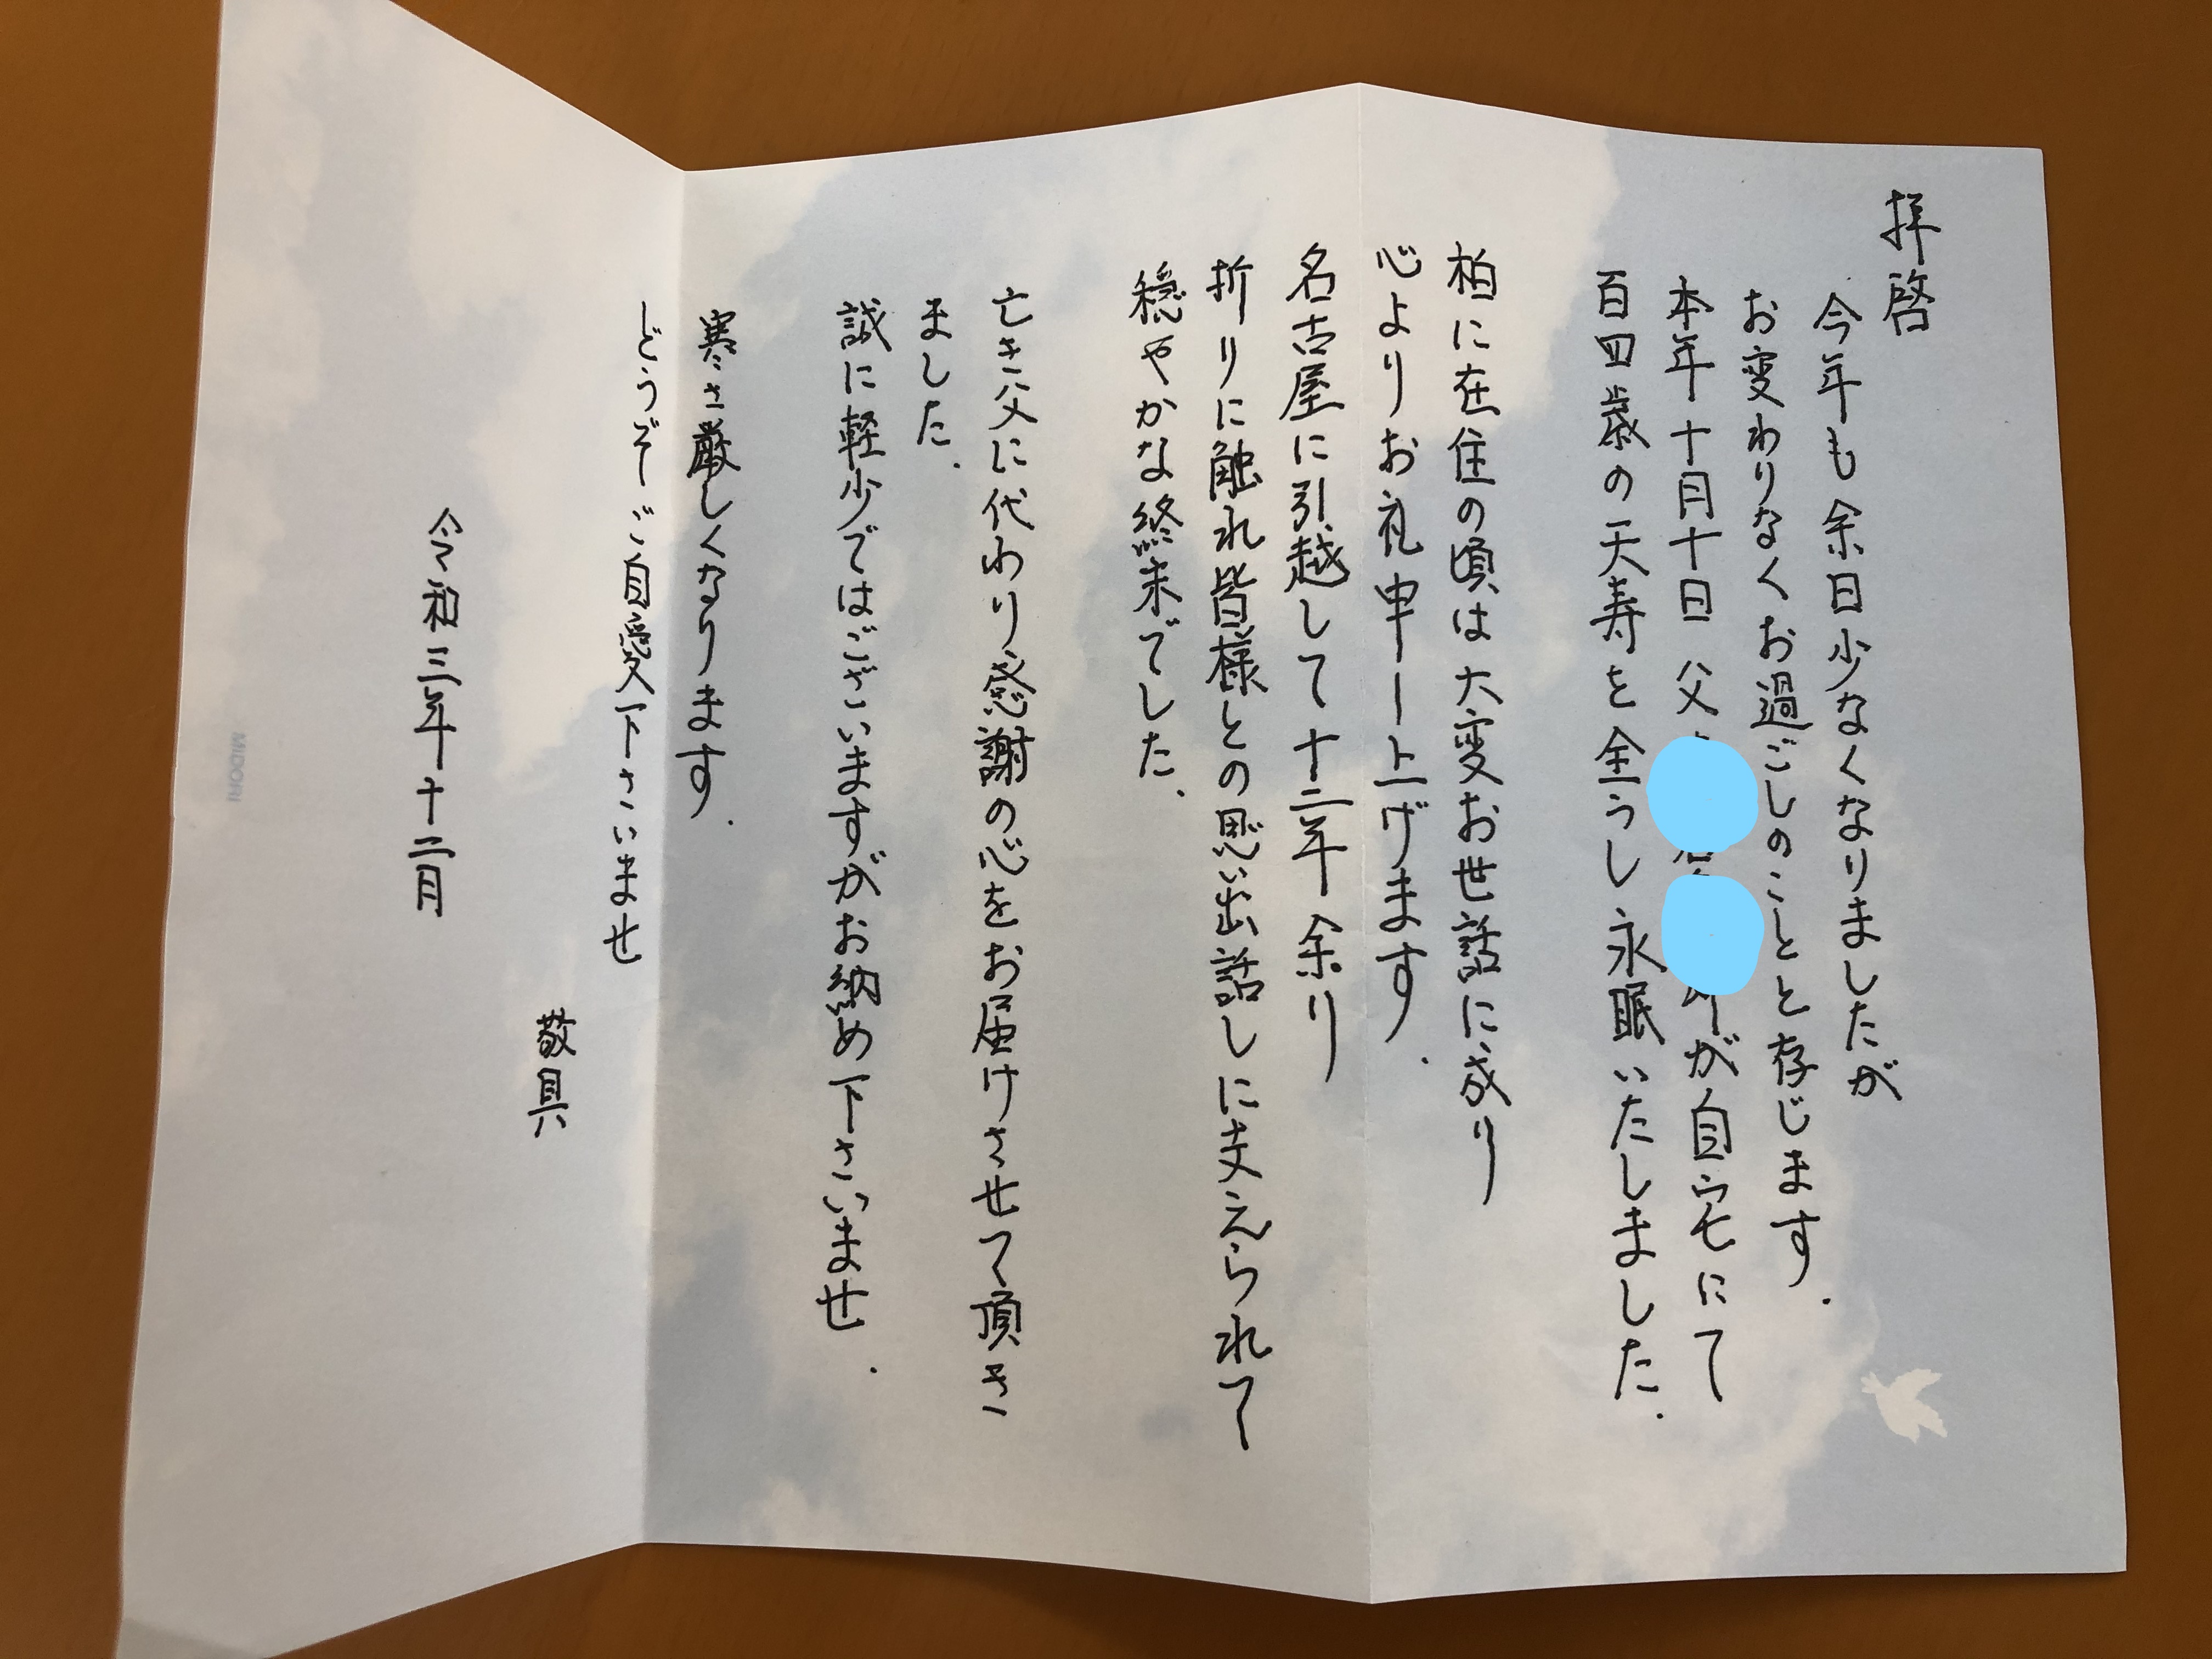 拝啓
今年も余日少なくなりましたが
お変わりなくお過ごしのことと存じます.
本年十月十日 父が自宅にて
百四歳の天寿を全うし永眠いたしました.
柏に在住の頃は大変お世話に成り
心よりお礼申し上げます.
名古屋に引越して十二年余り
折りに触れ皆様との思い出話しに支えられて
穏やかな終末でした.
亡き父に代わり感謝の心をお届けさせて頂き
ました.
誠に軽少ではございますがお納め下さいませ.
寒さ厳しくなります.
どうぞご自愛下さいませ
敬具
令和三年十二月
MIDORI